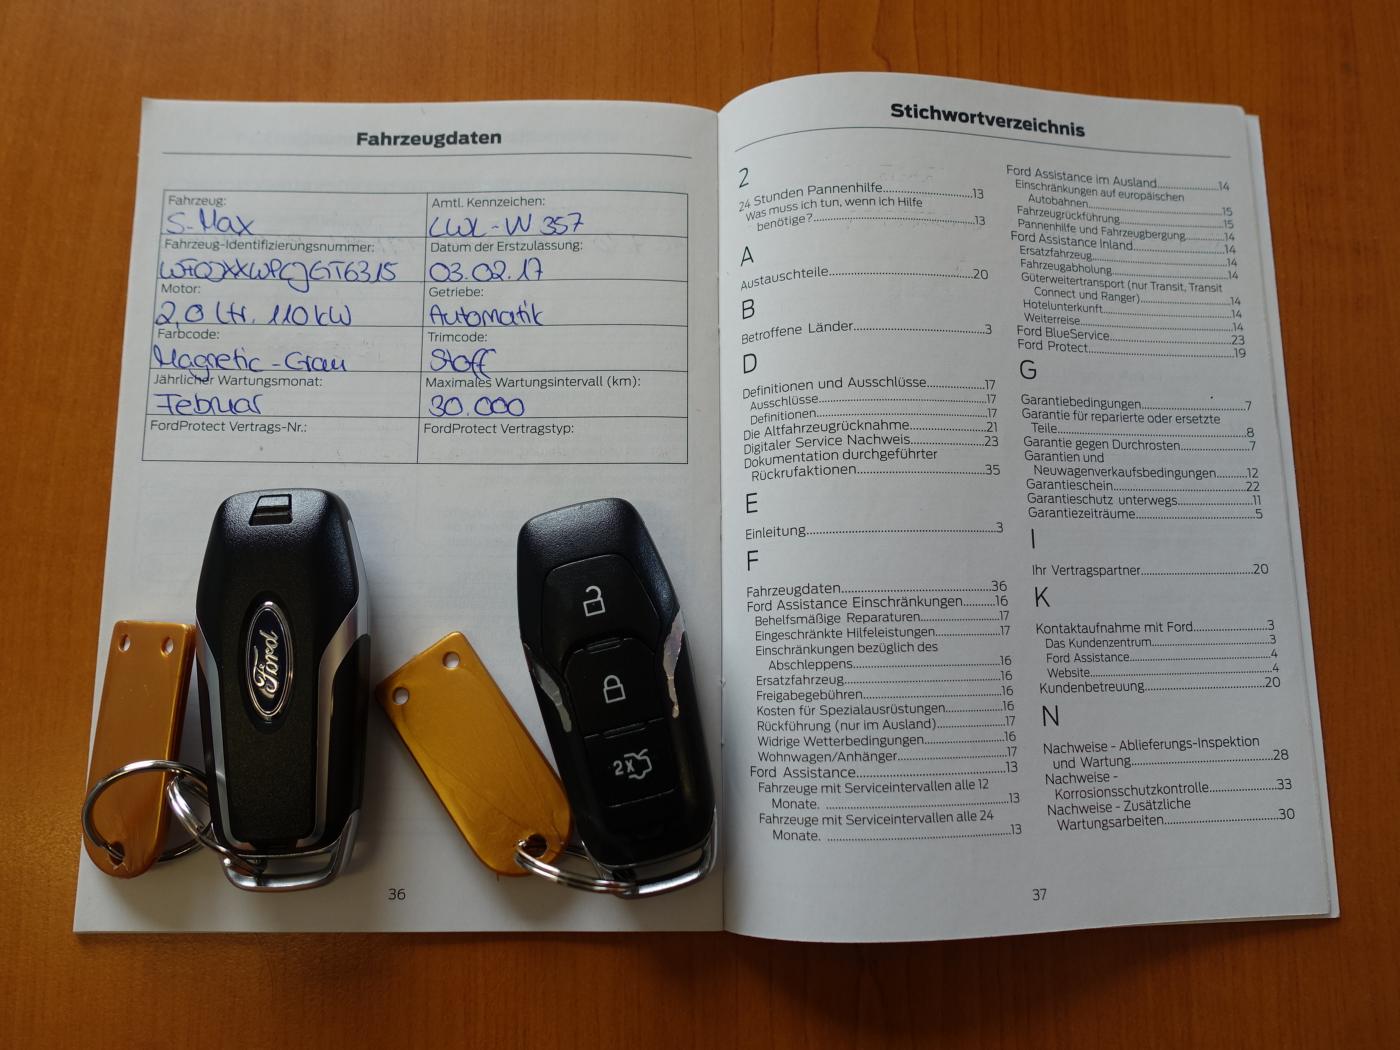 Fahrzeugdaten
Fahrzeug:
S-Max
Amtl. Kennzeichen:
LWL-W 357
Fahrzeug-Identifizierungsnummer:
WF0JXXWPCJGT6315
Datum der Erstzulassung:
03.02.17
Motor:
2,0 Ltr. 110 kW
Getriebe:
Automatik
Farbcode:
Magnetic-Grau
Trimcode:
Stoff
Jährlicher Wartungsmonat:
Februar
Maximales Wartungsintervall (km):
30.000
FordProtect Vertrags-Nr.:
FordProtect Vertragstyp:
Ford
2x
36
Stichwortverzeichnis
2
24 Stunden Pannenhilfe 13
Was muss ich tun, wenn ich Hilfe
benötige? 13
A
Austauschteile 20
B
Betroffene Länder 3
D
Definitionen und Ausschlüsse 17
Ausschlüsse 17
Definitionen 17
Die Altfahrzeugrücknahme 21
Digitaler Service Nachweis 23
Dokumentation durchgeführter
Rückrufaktionen 35
E
Einleitung 3
F
Fahrzeugdaten 36
Ford Assistance Einschränkungen 16
Behelfsmäßige Reparaturen 17
Eingeschränkte Hilfeleistungen 17
Einschränkungen bezüglich des
Abschleppens 16
Ersatzfahrzeug 16
Freigabegebühren 16
Kosten für Spezialausrüstungen 16
Rückführung (nur im Ausland) 17
Widrige Wetterbedingungen 16
Wohnwagen/Anhänger 17
Ford Assistance 13
Fahrzeuge mit Serviceintervallen alle 12
Monate. 13
Fahrzeuge mit Serviceintervallen alle 24
Monate. 13
Ford Assistance im Ausland 14
Einschränkungen auf europäischen
Autobahnen 15
Fahrzeugrückführung 15
Pannenhilfe und Fahrzeugbergung 14
Ford Assistance Inland 14
Ersatzfahrzeug 14
Fahrzeugabholung 14
Güterweitertransport (nur Transit, Transit
Connect und Ranger) 14
Hotelunterkunft 14
Weiterreise 14
Ford BlueService 23
Ford Protect 19
G
Garantiebedingungen 7
Garantie für reparierte oder ersetzte
Teile 8
Garantie gegen Durchrosten 7
Garantien und
Neuwagenverkaufsbedingungen 12
Garantieschein 22
Garantieschutz unterwegs 11
Garantiezeiträume 5
I
Ihr Vertragspartner 20
K
Kontaktaufnahme mit Ford 3
Das Kundenzentrum 3
Ford Assistance 4
Website 4
Kundenbetreuung 20
N
Nachweise - Ablieferungs-Inspektion
und Wartung 28
Nachweise -
Korrosionsschutzkontrolle 33
Nachweise - Zusätzliche
Wartungsarbeiten 30
37